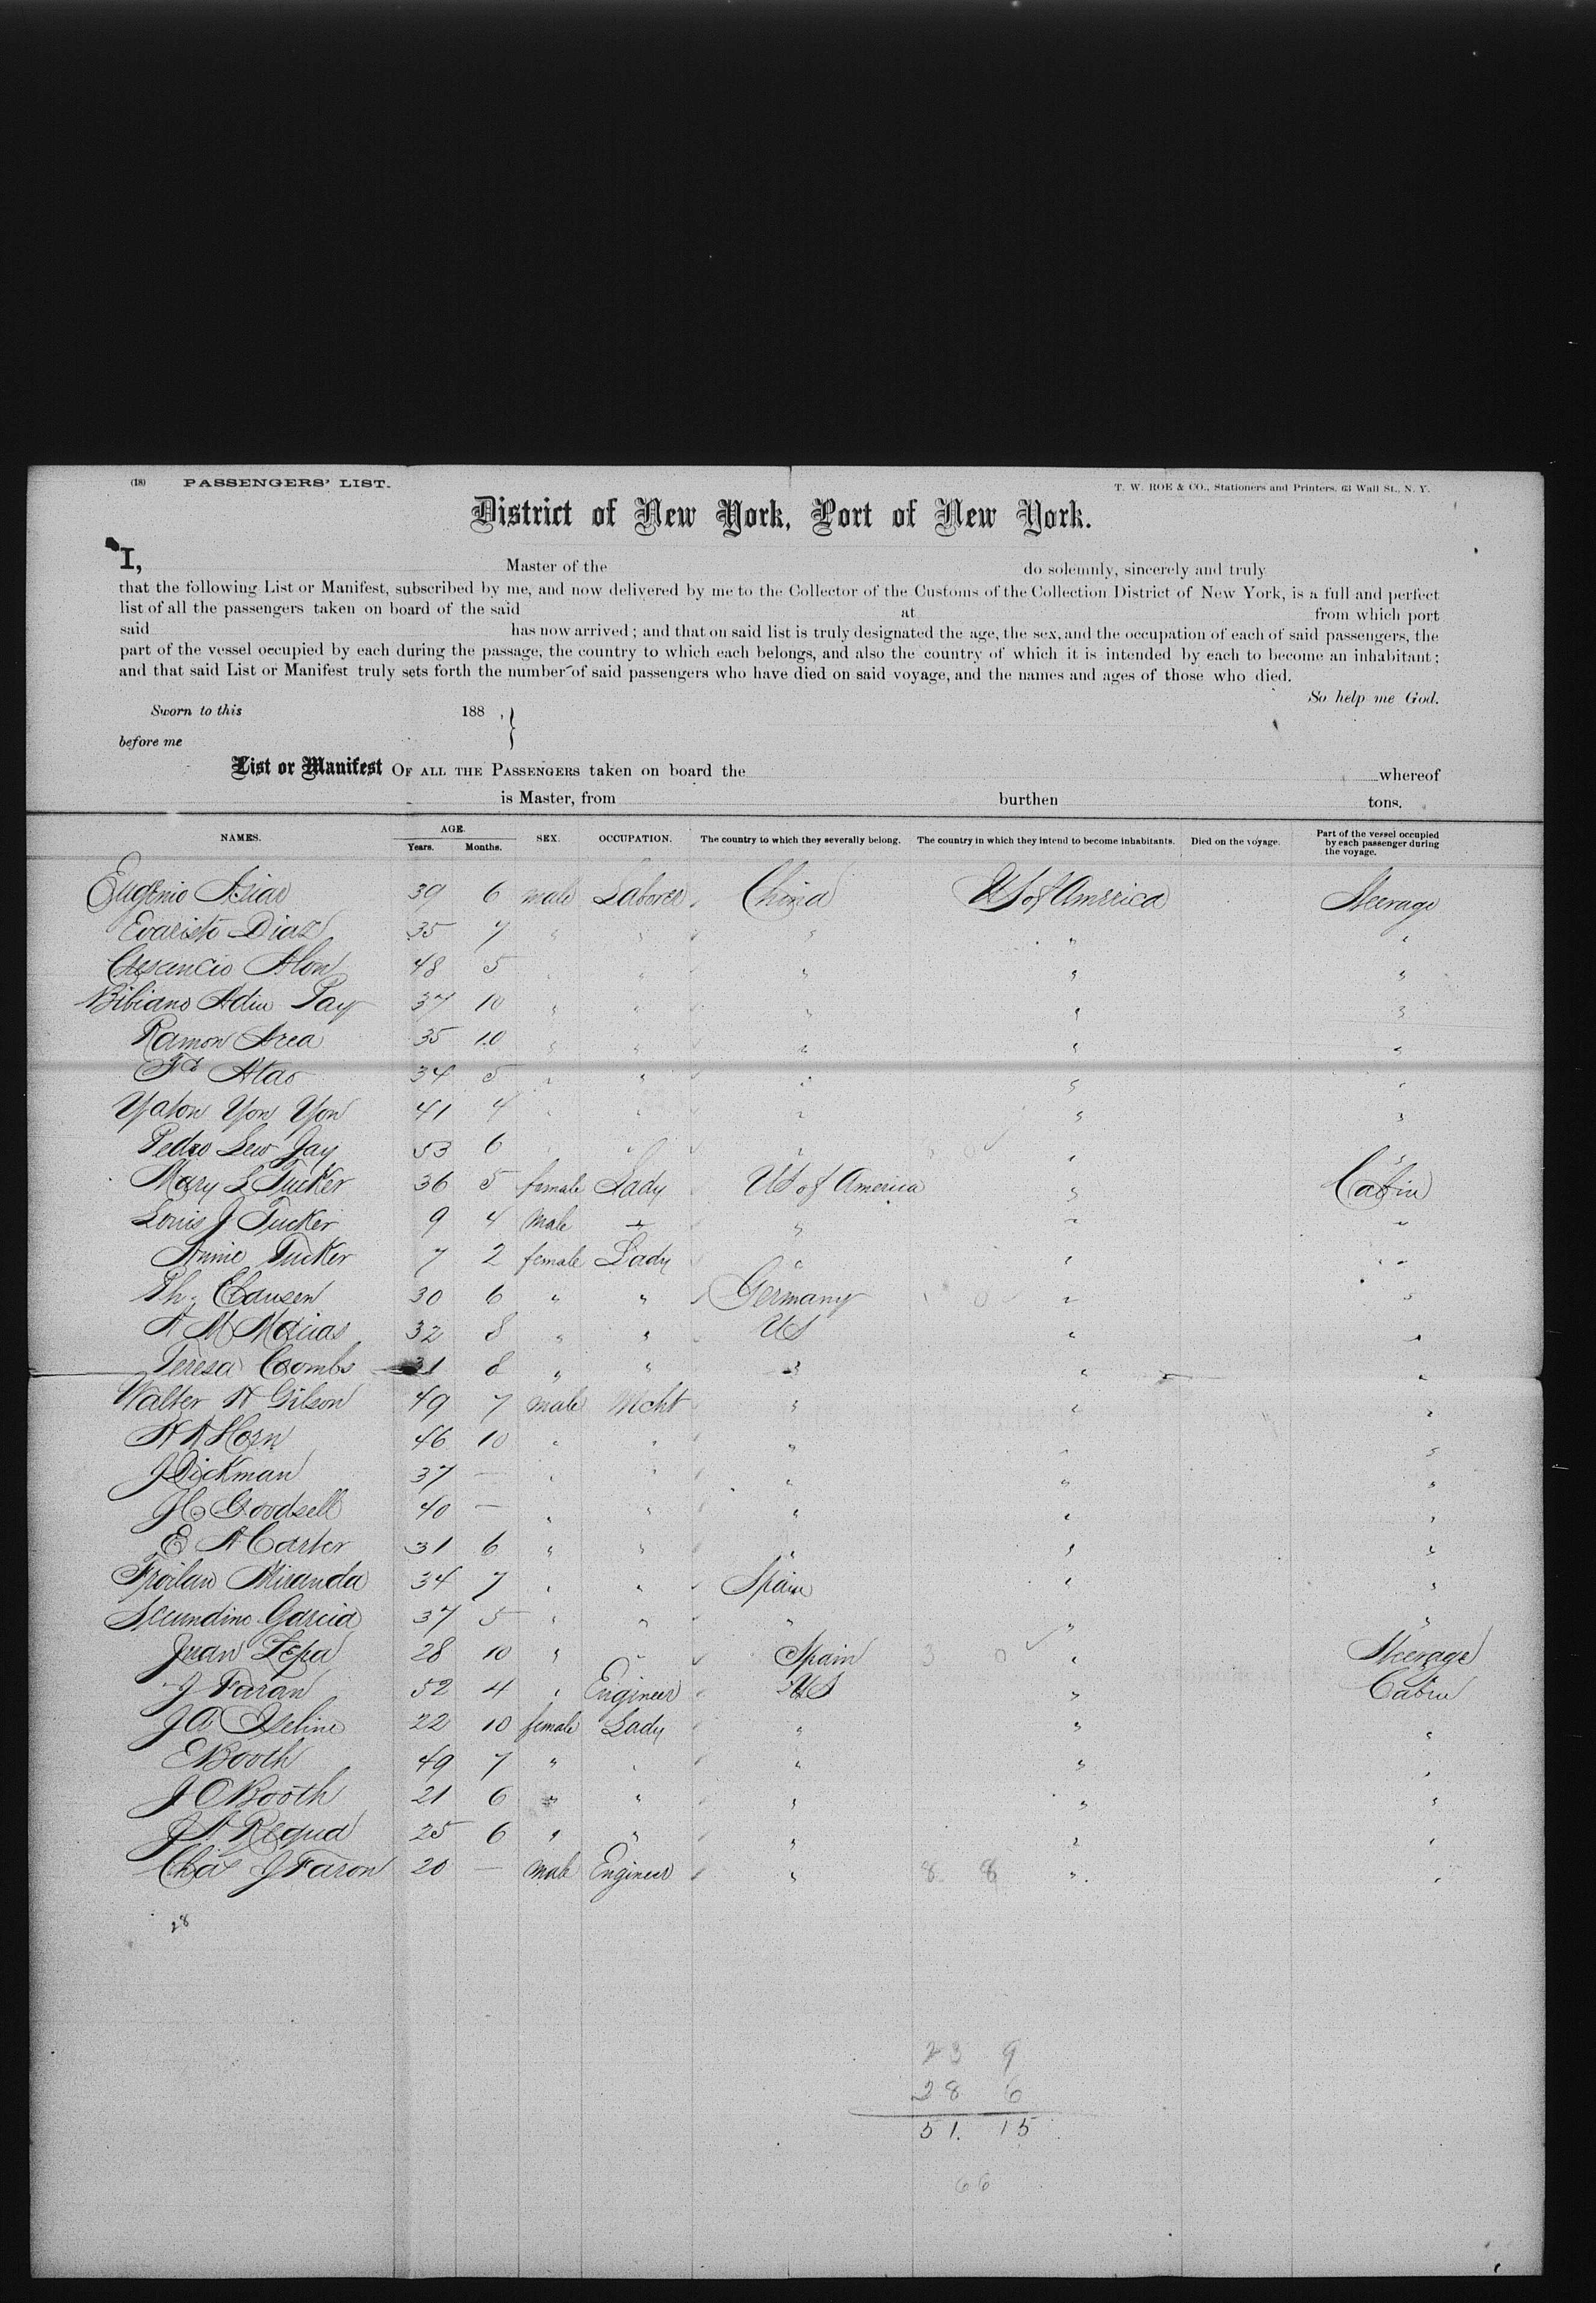 (18) PASSENGERS' LIST. T. W. ROE & CO., Stationers and Printers, 63 Wall St., N. Y.
District of New York, Port of New York.
I, Master of the do solemnly, sincerely and truly
that the following List or Manifest, subscribed by me, and now delivered by me to the Collector of the Customs of the Collection District of New York, is a full and perfect
list of all the passengers taken on board of the said at from which port
said has now arrived; and that on said list is truly designated the age, the sex, and the occupation of each of said passengers, the
part of the vessel occupied by each during the passage, the country to which each belongs, and also the country of which it is intended by each to become an inhabitant;
and that said List or Manifest truly sets forth the number of said passengers who have died on said voyage, and the names and ages of those who died.
So help me God.
Sworn to this 188 , }
before me
List or Manifest OF ALL THE PASSENGERS taken on board the whereof
is Master, from burthen tons.
NAMES. AGE. Years. Months. SEX. OCCUPATION. The country to which they severally belong. The country in which they intend to become inhabitants. Died on the voyage. Part of the vessel occupied by each passenger during the voyage.
Eugenio 39 6 male Laborer China US of America Steerage
Evaristo Diaz 35 7 " " " " "
Alon 48 5 " " " " "
Bibiano Pay 37 10 " " " " "
Ramon Area 35 10 " " " " "
Atao 34 5 " " " " "
Yaton Yon Yon 41 4 " " " " "
Pedro Lew Jay 53 6 " " " " "
Mary L Tucker 36 5 female Lady US of America " Cabin
Louis J Tucker 9 4 male - " " "
Annie Tucker 7 2 female Lady " " "
Ph. Clausen 30 6 " " Germany " "
A M Macias 32 8 " " US " "
Teresa Coombs 31 8 " " " " "
Walter H Gilson 49 7 male Mcht " " "
H A Horn 46 10 " " " " "
J Dickman 37 — " " " " "
J C Goodsell 40 — " " " " "
E A Carter 31 6 " " " " "
Froilan Miranda 34 7 " " Spain " "
Secundino Garcia 37 5 " " " " "
Juan Lepa 28 10 " " Spain 3 0 " Steerage
J Faran 52 4 " Engineer US " Cabin
J A Iseline 22 10 female Lady " " "
E Booth 49 7 " " " " "
J C Booth 21 6 " " " " "
J A Requa 25 6 " " " " "
Chas J Faron 20 — male Engineer " 8 8 " "
28
23 9
28 6
51. 15
66